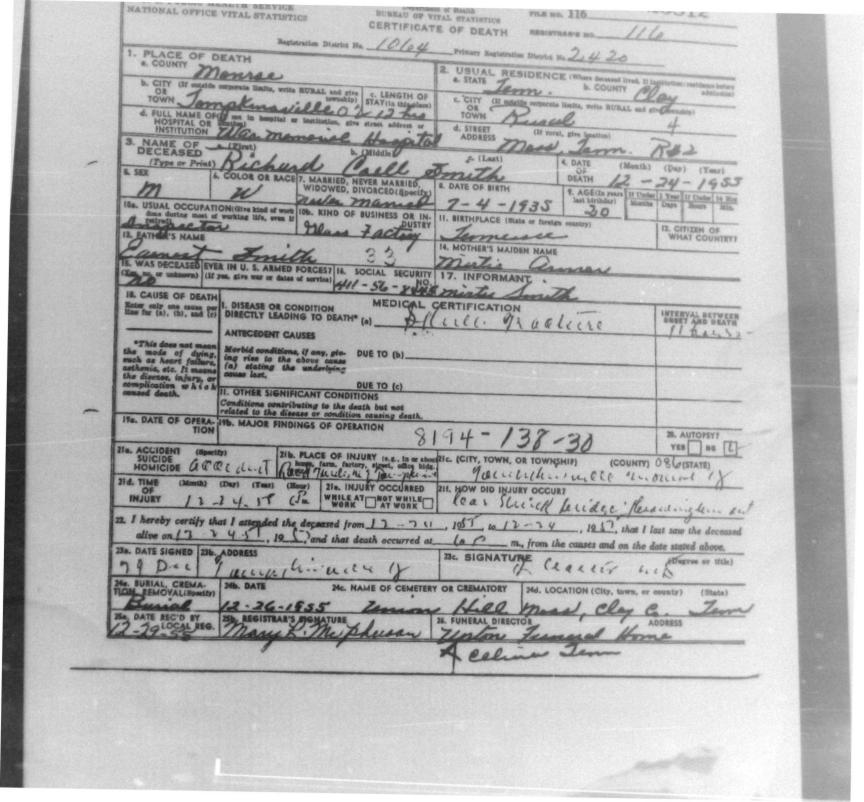 HEALTH SERVICE
NATIONAL OFFICE VITAL STATISTICS
Department of Health
BUREAU OF VITAL STATISTICS
CERTIFICATE OF DEATH
FILE NO. 116
REGISTRAR'S NO. 116
Registration District No. 1064 Primary Registration District No. 2420
1. PLACE OF DEATH
a. COUNTY Monroe
b. CITY (If outside corporate limits, write RURAL and give township)
OR TOWN Tompkinsville
c. LENGTH OF STAY (in this place) 12 hrs
d. FULL NAME OF (If not in hospital or institution, give street address or location)
HOSPITAL OR INSTITUTION War Memorial Hospital
2. USUAL RESIDENCE (Where deceased lived. If institution: residence before admission)
a. STATE Tenn. b. COUNTY Clay
c. CITY (If outside corporate limits, write RURAL and give township)
OR TOWN Rural 4
d. STREET ADDRESS (If rural, give location)
Moss, Tenn. R#2
3. NAME OF DECEASED (Type or Print)
a. (First) b. (Middle) c. (Last)
Richard Smith
4. DATE OF DEATH (Month) (Day) (Year)
12-24-1955
5. SEX
M
6. COLOR OR RACE
W
7. MARRIED, NEVER MARRIED, WIDOWED, DIVORCED (Specify)
never married
8. DATE OF BIRTH
7-4-1935
9. AGE (In years last birthday)
20
If Under 1 Year Months Days
If Under 24 Hrs Hours Min.
10a. USUAL OCCUPATION (Give kind of work done during most of working life, even if retired)
Inspector
10b. KIND OF BUSINESS OR INDUSTRY
Glass Factory
11. BIRTHPLACE (State or foreign country)
Tennessee
12. CITIZEN OF WHAT COUNTRY?
13. FATHER'S NAME
Earnest Smith 33
14. MOTHER'S MAIDEN NAME
Mirtis
15. WAS DECEASED EVER IN U. S. ARMED FORCES?
(Yes, no, or unknown) (If yes, give war or dates of service)
no
16. SOCIAL SECURITY NO.
411-56-
17. INFORMANT
Mirtis Smith
18. CAUSE OF DEATH
Enter only one cause per line for (a), (b), and (c)
*This does not mean the mode of dying, such as heart failure, asthenia, etc. It means the disease, injury, or complication which caused death.
MEDICAL CERTIFICATION
I. DISEASE OR CONDITION DIRECTLY LEADING TO DEATH* (a) Skull fracture
INTERVAL BETWEEN ONSET AND DEATH
11 hours
ANTECEDENT CAUSES
Morbid conditions, if any, giving rise to the above cause (a) stating the underlying cause last.
DUE TO (b)
DUE TO (c)
II. OTHER SIGNIFICANT CONDITIONS
Conditions contributing to the death but not related to the disease or condition causing death.
19a. DATE OF OPERATION
19b. MAJOR FINDINGS OF OPERATION
8194-138-30
20. AUTOPSY?
YES NO
21a. ACCIDENT SUICIDE HOMICIDE (Specify)
accident
21b. PLACE OF INJURY (e.g., in or about home, farm, factory, street, office bldg.
21c. (CITY, TOWN, OR TOWNSHIP) (COUNTY) 086 (STATE)
21d. TIME OF INJURY (Month) (Day) (Year) (Hour)
12-24-55
21e. INJURY OCCURRED
WHILE AT WORK NOT WHILE AT WORK
21f. HOW DID INJURY OCCUR?
Car struck bridge
22. I hereby certify that I attended the deceased from 12-24, 1955, to 12-24, 1955, that I last saw the deceased
alive on 12-24, 1955 and that death occurred at m., from the causes and on the date stated above.
23a. DATE SIGNED
29 Dec
23b. ADDRESS
23c. SIGNATURE (Degree or title)
24a. BURIAL, CREMATION, REMOVAL (Specify)
Burial
24b. DATE
12-26-1955
24c. NAME OF CEMETERY OR CREMATORY
Union Hill
24d. LOCATION (City, town, or county) (State)
Moss, Clay C. Tenn
25a. DATE REC'D BY LOCAL REG.
12-29-55
25b. REGISTRAR'S SIGNATURE
Mary L. McPherson
26. FUNERAL DIRECTOR ADDRESS
Upton Funeral Home
Celina Tenn